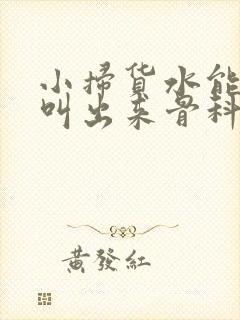 小掃貨水能
叫出来骨科
黃發紅